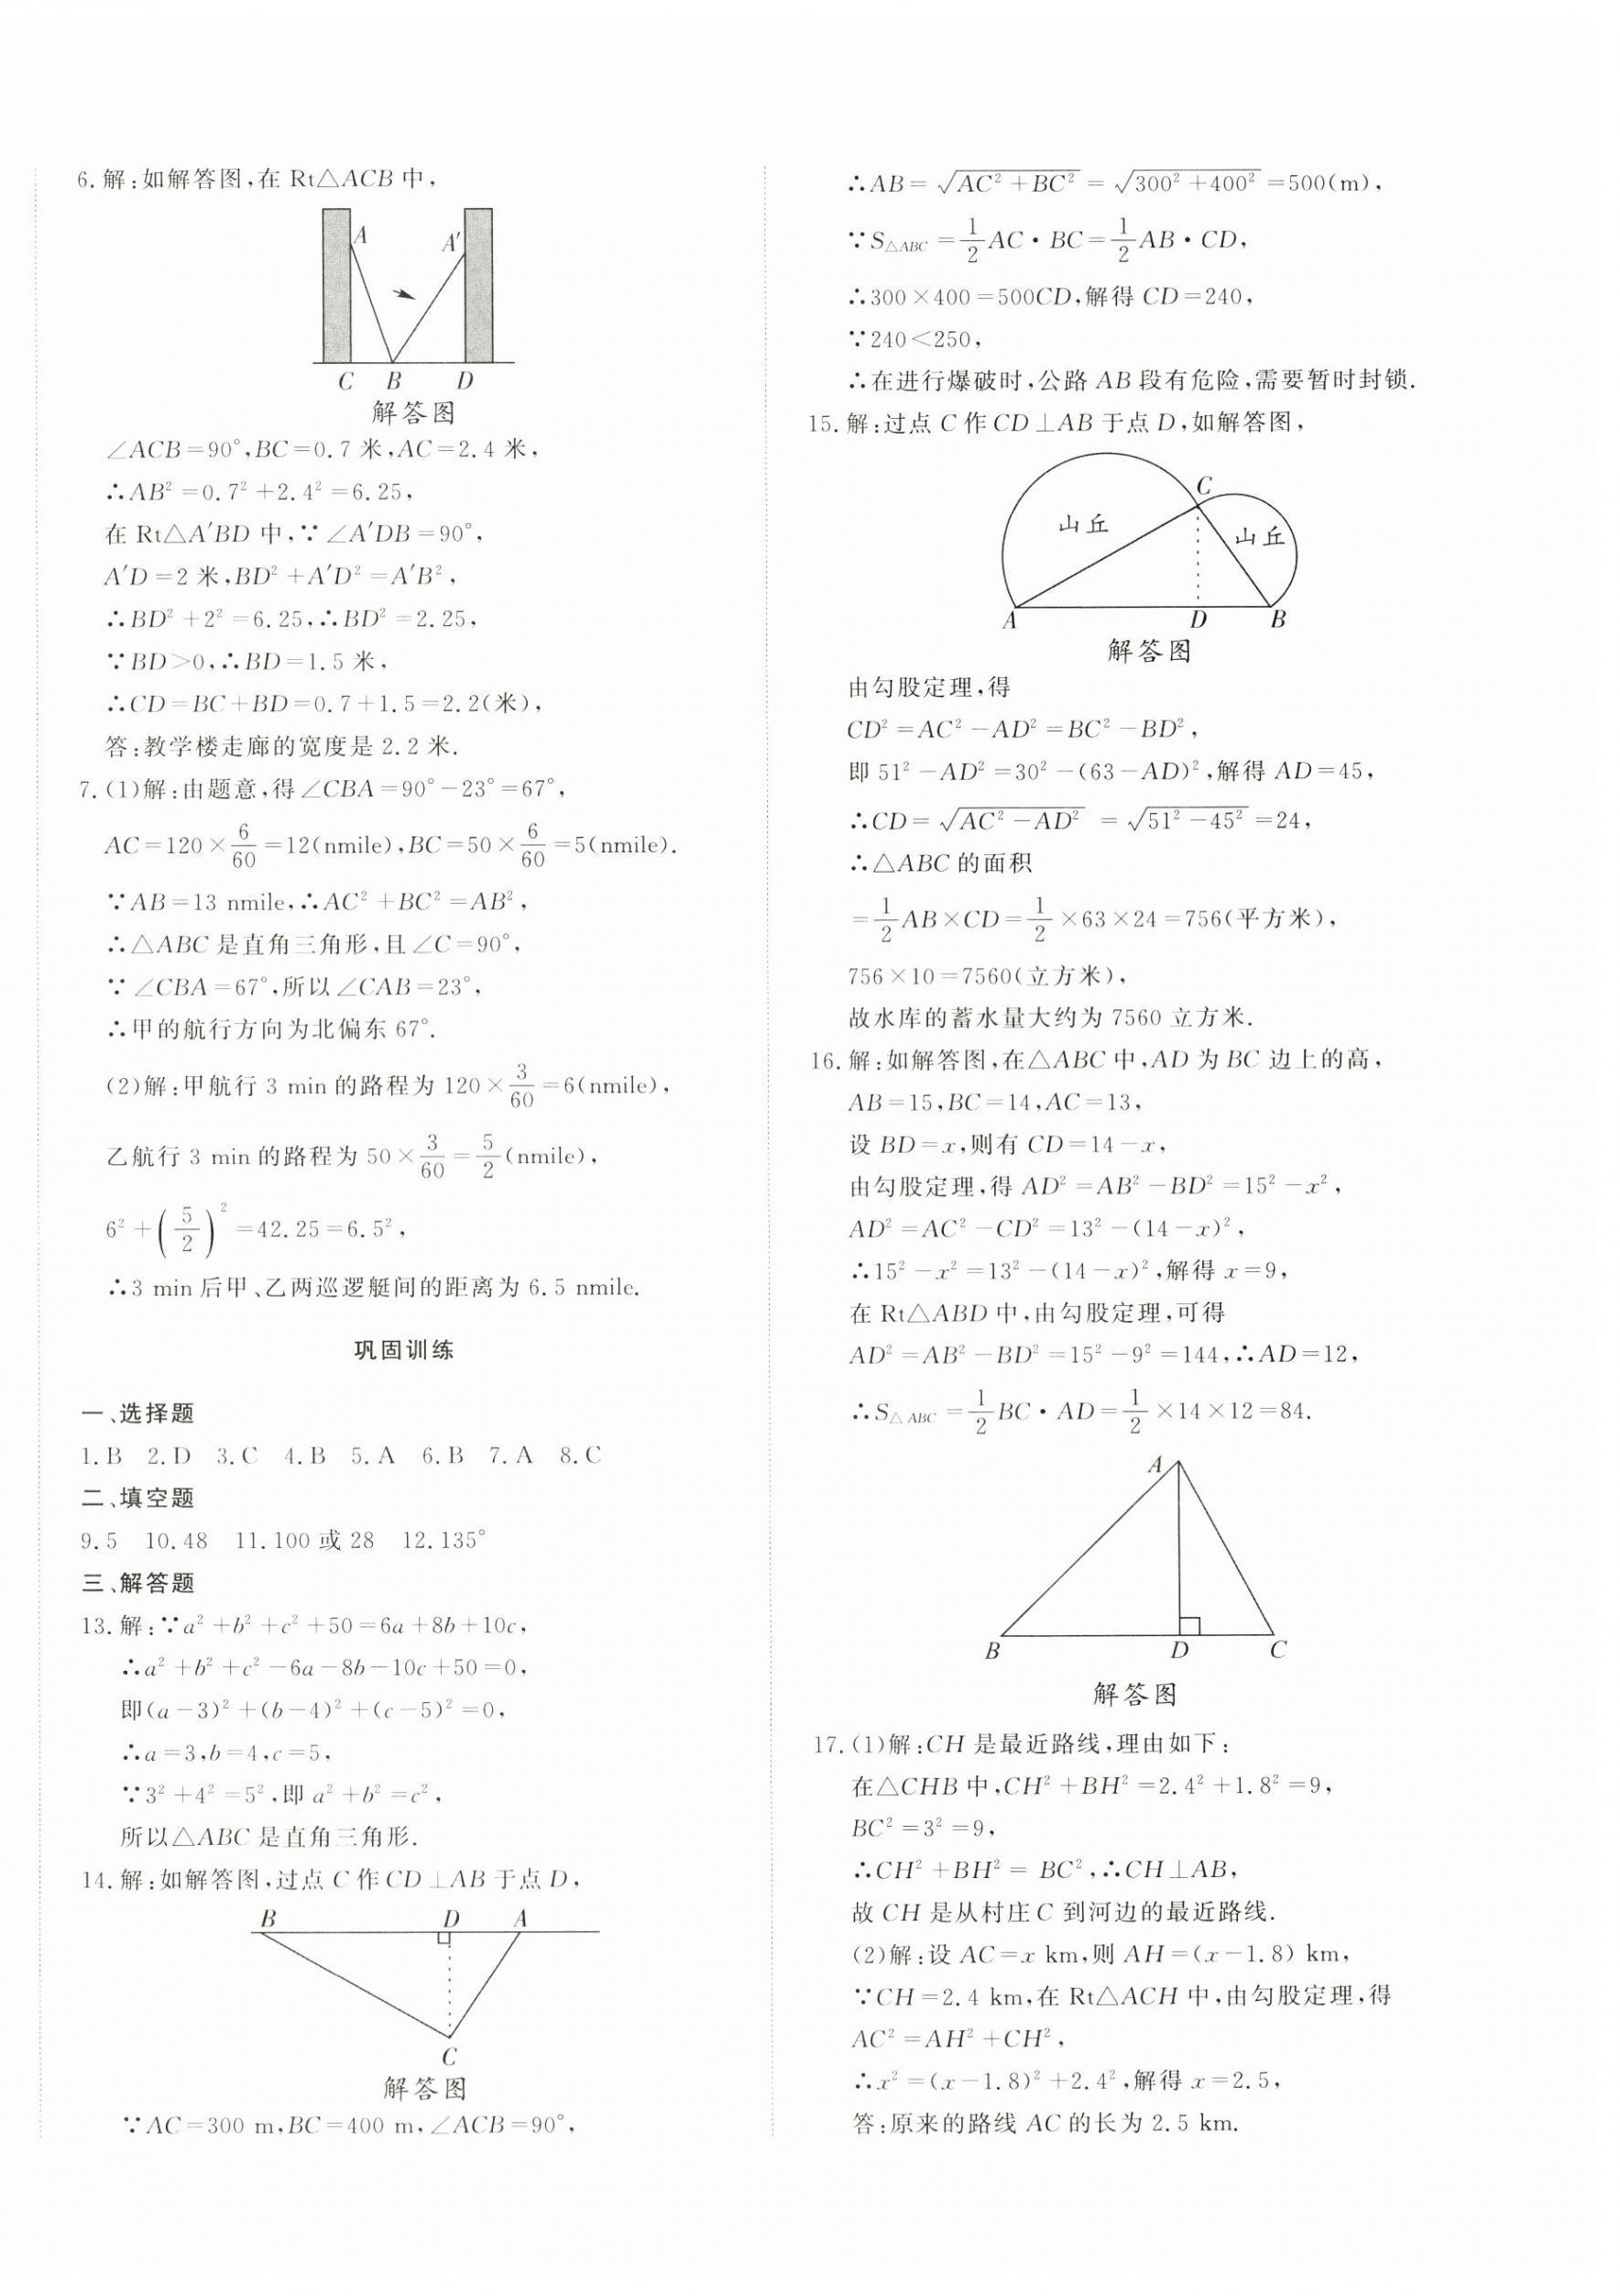 6.解:如解答图,在 Rt△ACB 中,
A A′
C B D
解答图
∠ACB=90°,BC=0.7 米,AC=2.4 米,
∴AB²=0.7²+2.4²=6.25,
在 Rt△A′BD 中,∵∠A′DB=90°,
A′D=2 米,BD²+A′D²=A′B²,
∴BD²+2²=6.25,∴BD²=2.25,
∵BD>0,∴BD=1.5 米,
∴CD=BC+BD=0.7+1.5=2.2(米),
答:教学楼走廊的宽度是 2.2 米.
7.(1)解:由题意,得∠CBA=90°-23°=67°,
AC=120×6/60=12(nmile),BC=50×6/60=5(nmile).
∵AB=13 nmile,∴AC²+BC²=AB²,
∴△ABC 是直角三角形,且∠C=90°,
∵∠CBA=67°,所以∠CAB=23°,
∴甲的航行方向为北偏东 67°.
(2)解:甲航行 3 min 的路程为 120×3/60=6(nmile),
乙航行 3 min 的路程为 50×3/60=5/2(nmile),
6²+(5/2)²=42.25=6.5²,
∴3 min 后甲、乙两巡逻艇间的距离为 6.5 nmile.
巩固训练
一、选择题
1.B 2.D 3.C 4.B 5.A 6.B 7.A 8.C
二、填空题
9.5 10.48 11.100 或 28 12.135°
三、解答题
13.解:∵a²+b²+c²+50=6a+8b+10c,
∴a²+b²+c²-6a-8b-10c+50=0,
即(a-3)²+(b-4)²+(c-5)²=0,
∴a=3,b=4,c=5,
∵3²+4²=5²,即 a²+b²=c²,
所以△ABC 是直角三角形.
14.解:如解答图,过点 C 作 CD⊥AB 于点 D,
B D A
C
解答图
∵AC=300 m,BC=400 m,∠ACB=90°,
∴AB=√(AC²+BC²)=√(300²+400²)=500(m),
∵S△ABC=1/2AC·BC=1/2AB·CD,
∴300×400=500CD,解得 CD=240,
∵240<250,
∴在进行爆破时,公路 AB 段有危险,需要暂时封锁.
15.解:过点 C 作 CD⊥AB 于点 D,如解答图,
C
山丘 山丘
A D B
解答图
由勾股定理,得
CD²=AC²-AD²=BC²-BD²,
即 51²-AD²=30²-(63-AD)²,解得 AD=45,
∴CD=√(AC²-AD²)=√(51²-45²)=24,
∴△ABC 的面积
=1/2AB×CD=1/2×63×24=756(平方米),
756×10=7560(立方米),
故水库的蓄水量大约为 7560 立方米.
16.解:如解答图,在△ABC 中,AD 为 BC 边上的高,
AB=15,BC=14,AC=13,
设 BD=x,则有 CD=14-x,
由勾股定理,得 AD²=AB²-BD²=15²-x²,
AD²=AC²-CD²=13²-(14-x)²,
∴15²-x²=13²-(14-x)²,解得 x=9,
在 Rt△ABD 中,由勾股定理,可得
AD²=AB²-BD²=15²-9²=144,∴AD=12,
∴S△ABC=1/2BC·AD=1/2×14×12=84.
A
B D C
解答图
17.(1)解:CH 是最近路线,理由如下:
在△CHB 中,CH²+BH²=2.4²+1.8²=9,
BC²=3²=9,
∴CH²+BH²=BC²,∴CH⊥AB,
故 CH 是从村庄 C 到河边的最近路线.
(2)解:设 AC=x km,则 AH=(x-1.8) km,
∵CH=2.4 km,在 Rt△ACH 中,由勾股定理,得
AC²=AH²+CH²,
∴x²=(x-1.8)²+2.4²,解得 x=2.5,
答:原来的路线 AC 的长为 2.5 km.